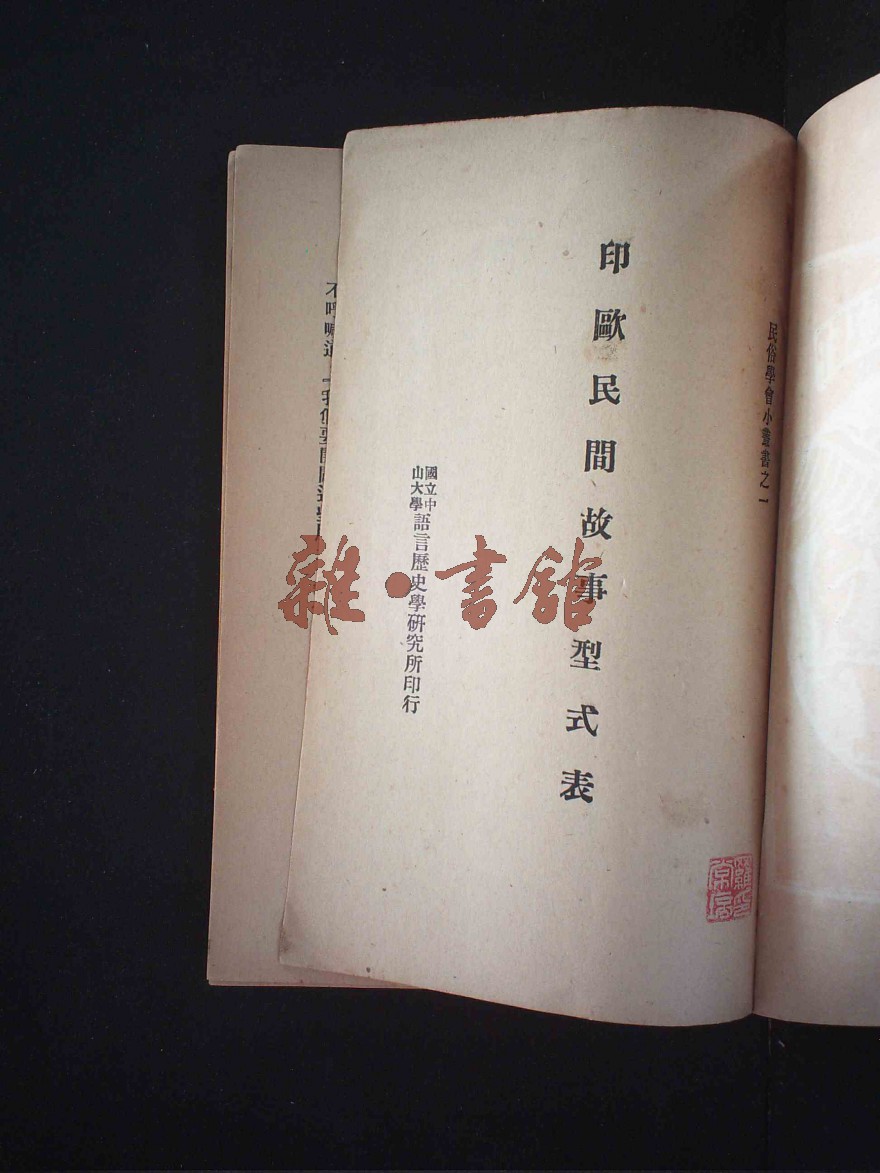 民俗學會小叢書之一
印歐民間故事型式表
國立中山大學語言歷史學研究所印行
雜·書館